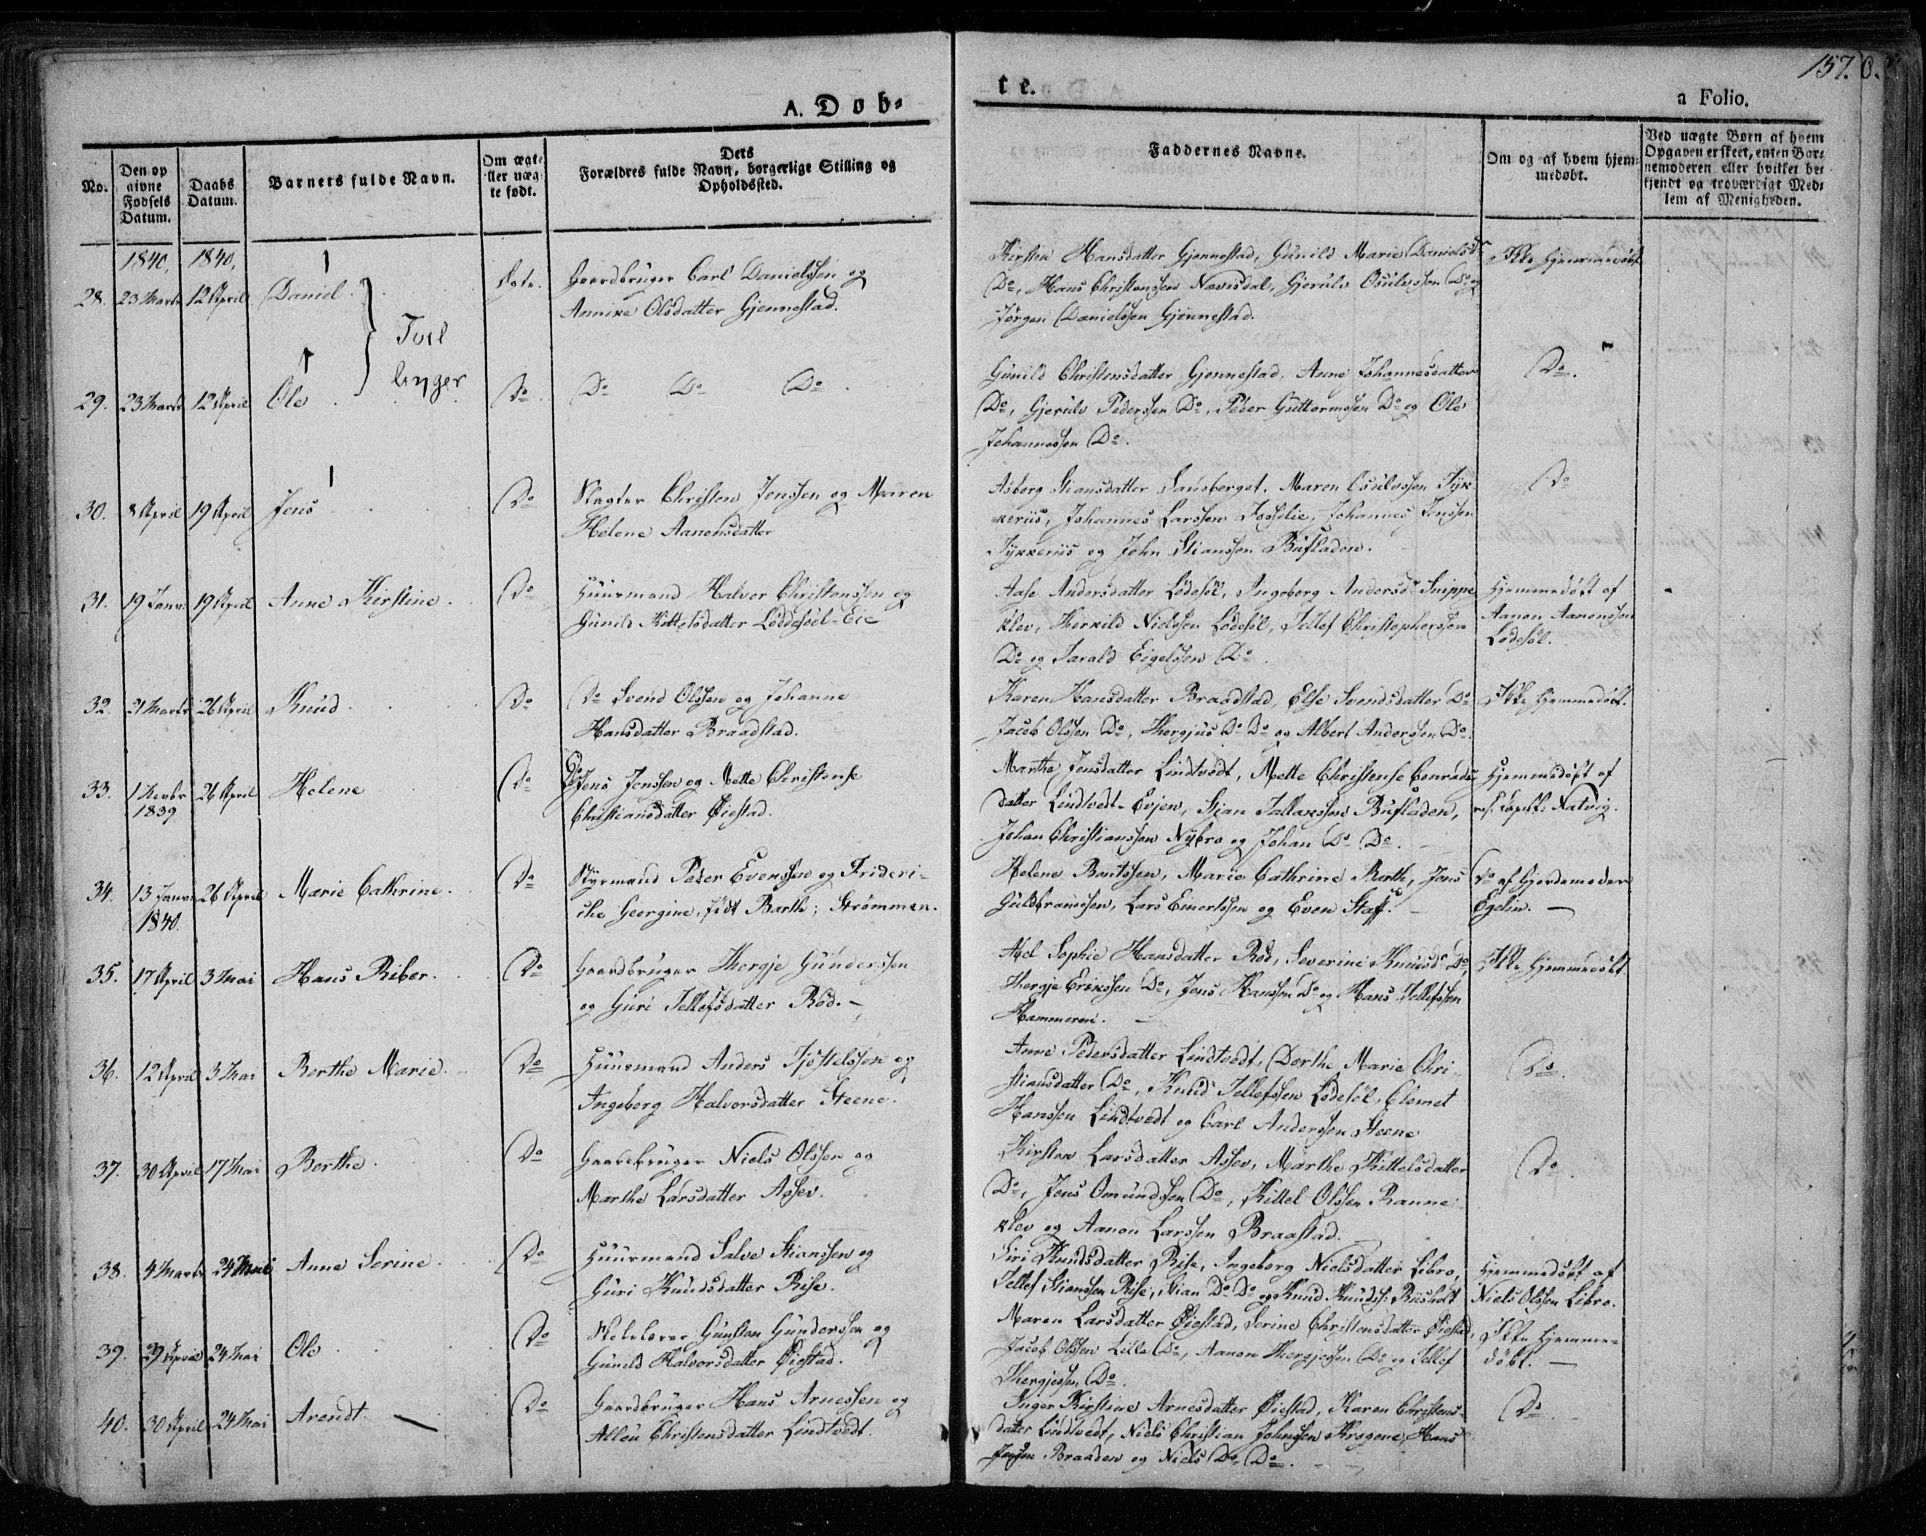 157.
A. Døb-
te.
a Folio.
No.
Den op
givne
Fødsels
Datum.
Daabs
Datum.
Barnets fulde Navn.
Om ægte
eller uæg-
te født.
Dets
Forældres fulde Navn, borgerlige Stilling og
Opholdssted.
Faddernes Navne.
Om og af hvem hjem-
medøbt.
Ved uægte Børn af hvem
Opgaven er skeet, enten Bar-
nemoderen eller hvilket be-
kjendt og troværdigt Med-
lem af Menigheden.
1840, 1840,
28. 23 Marts 12 April Daniel
Tvil
linger
Gaardbruger Carl Danielssen og
Annike Olsdatter Gjennestad.
Kirsten Hansdatter Gjennestad, Gunild Marie Danielsdr
Do, Hans Christenssen Navisdal, Gjeruls Osulvssen Do og
Jørgen Danielssen Gjennestad.
Ikke Hjemmedøbt
29. 23 Marts 12 April Ole Do. Do Do Do
Gunild Christensdatter Gjennestad, Anne Johannesdatter
Do, Gjeruls Pederssen Do, Peder Guttormssen Do og Ole
Johannessen Do.
Do.
30. 8 April 19 April Jens Do Slagter Christen Jenssen og Maren
Helene Aanensdatter
Asborg Stiansdatter Sandberget, Maren Osulvssen Tyk-
keriis, Johannes Larssen Fosselie, Johannes Jenssen
Tykkeriis og John Stianssen Bufladen.
Do
31. 19 Janv. 19 April Anne Kirstine. Do Huusmand Halvor Christenssen og
Gunild Kittelsdatter Løddesøel-Eie
Aase Andersdatter Lødesøl, Ingeborg Andersdr Snippe
klev, Therkild Nielssen Lødesøl, Tellef Christopherssen
Do og Sarald Eigelssen Do
Hjemmedøbt af
Aanon Aanonssen
Lødesøl.
32. 21 Marts 26 April Knud Do Do Svend Olssen og Johanne
Hansdatter Braadstad.
Karen Hansdatter Braadstad, Else Svendsdatter Do
Jacob Olssen Do, Thergjus Do Do og Albert Anderssen Do.
Ikke Hjemmedøbt.
33. 1 Novbr 26 April Helene Do Do Jens Jenssen og Mette Christense
1839
Christiansdatter Øiestad.
Marthe Jensdatter Lindtvedt, Mette Christense Conrads-
datter Lindtvedt-Evjen, Stian Tallakssen Bufladen,
Johan Christianssen Nybro og Johan Do Do.
Hjemmedøbt af
res. Capell: Natvig.
34. 13 Janv. 26 April Marie Cathrine. Do Styrmand Peder Evenssen og Frideri-
1840.
cke Georgine, født Barth; Strømmen.
Helene Bentssen, Marie Cathrine Barth, Jens
Guldbranssen, Lars Einertssen og Even Staff.
Do af Gjordemoder
Egelin.
35. 17 April 3 Mai Hans Riber. Do Gaardbruger Thergje Gunderssen
og Guri Tellefsdatter Rød.
Abel Sophie Hansdatter Rød, Severine Knudsdr Do,
Thergje Erikssen Do, Jens Hanssen Do og Hans Tellefssen
Hammeren.
Ikke Hjemmedøbt
36. 12 April 3 Mai Berthe Marie. Do Huusmand Anders Tjøstelssen og
Ingeborg Halvorsdatter Steene.
Anne Pedersdatter Lindtvedt, Dorthe Marie Chri-
stiansdatter Do, Knud Tellefssen Lødesøl, Clemet
Hanssen Lindtvedt og Carl Anderssen Steene
Do.
37. 30 April 17 Mai Berthe Do Gaardbruger Niels Olssen og
Marthe Larsdatter Assev.
Kirsten Larsdatter Assev, Marthe Kittelsdatter
Do, Jens Omundssen Do, Kittel Olssen Ranne-
klev og Aanon Larssen Braastad.
Do.
38. 4 Marts 24 Mai Anne Serine. Do Huusmand Salve Stianssen og
Guri Knudsdatter Rise.
Siri Knudsdatter Rise, Ingeborg Nielsdatter Libro,
Tellef Stianssen Rise, Stian Do Do og Knud Knuds: Riisholt
Hjemmedøbt af
Niels Olssen Libro.
39. 29 April 24 Mai Ole Do Skolelærer Gunsten Gunderssen og
Gunild Halvorsdatter Øiestad.
Maren Larsdatter Øiestad, Serine Christensdatter Øiestad,
Jacob Olssen Lille Do, Aanon Thergjessen Do og Tellef
Thergjessen Do.
Ikke Hjemme-
døbt.
40. 30 April 24 Mai Arendt. Do Gaardbruger Hans Arnessen og
Alleu Christensdatter Lindtvedt.
Inger Kirstine Arnesdatter Øiestad, Karen Christens-
datter Lindtvedt, Niels Christian Johnssen Krogene, Hans
Jenssen Braaden og Niels Do Do.
Do